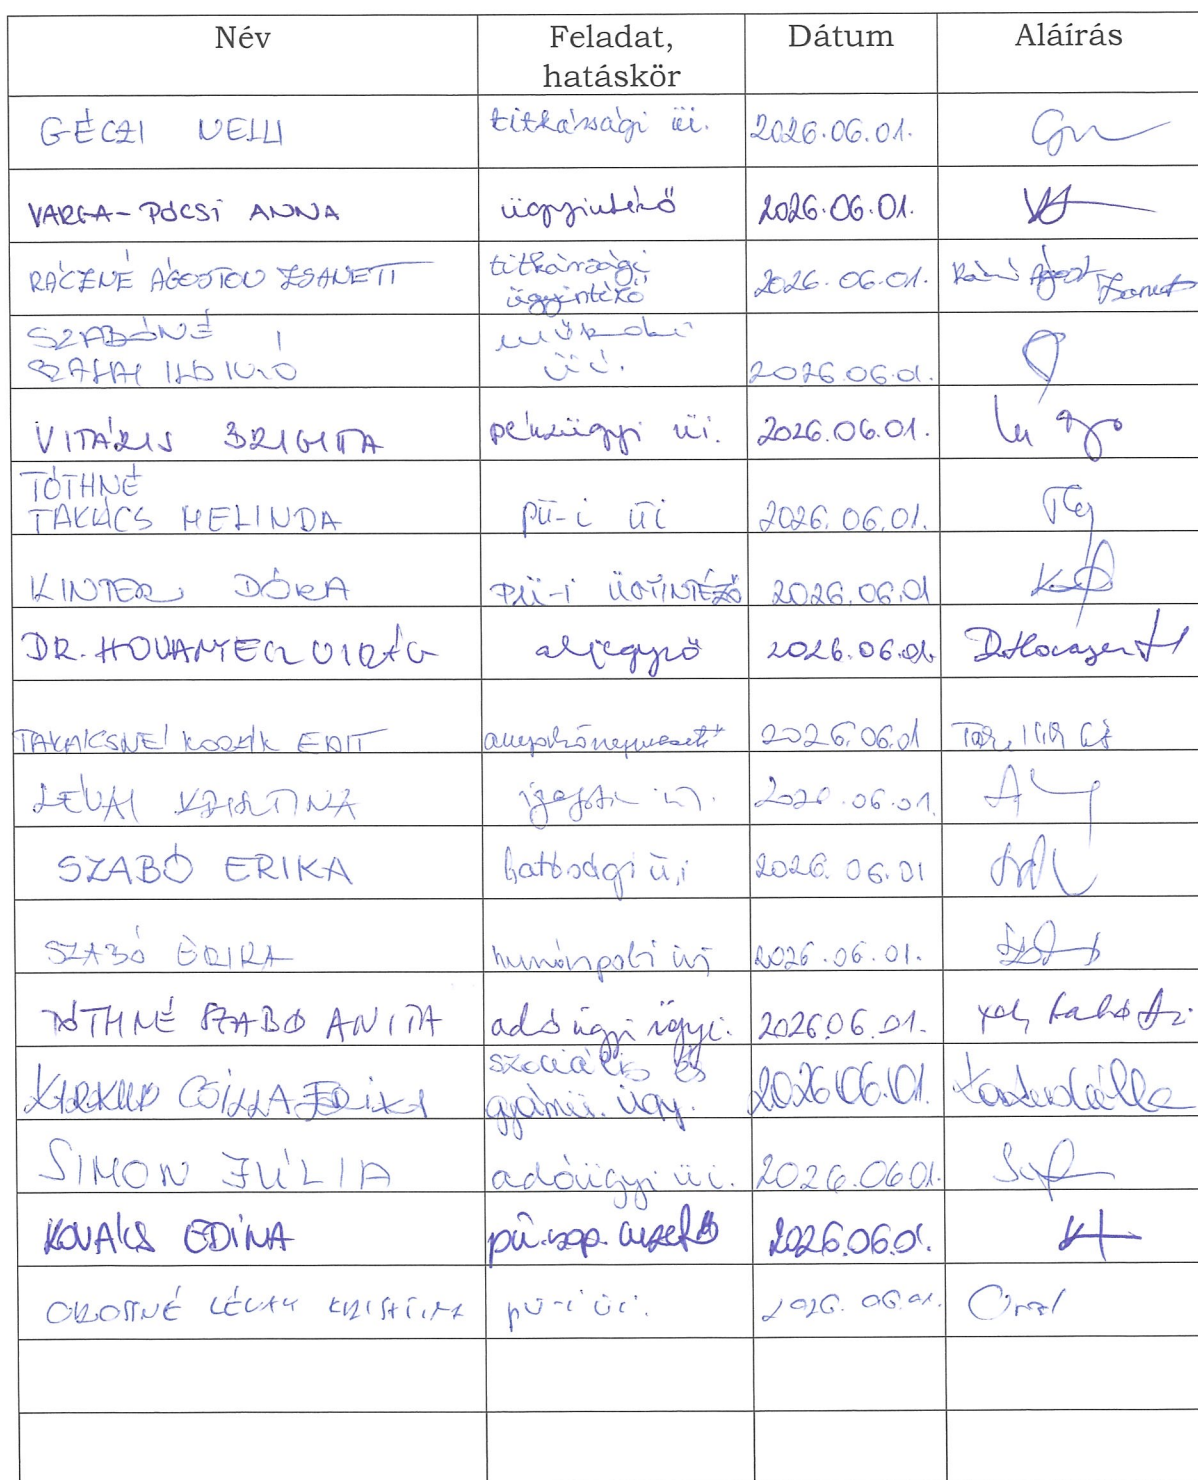 Név Feladat, Dátum Aláírás
hatáskör
GÉCZI NELLI titkársági üi. 2026.06.01.
VARGA-PÓCSI ANNA ügyintéző 2026.06.01.
RÁCZNÉ ÁGOSTON ZSANETT titkársági 2026.06.01.
ügyintéző
SZABÓNÉ műszaki
SZALAI ILDIKÓ üi. 2026.06.01.
VITÁLIS BRIGITTA pénzügyi üi. 2026.06.01.
TÓTHNÉ
TAKÁCS MELINDA pü-i üi 2026.06.01.
KINTER DÓRA PÜ-i ÜGYINTÉZŐ 2026.06.01
DR. HOVANYECZ VIRÁG aljegyző 2026.06.01.
TAKÁCSNÉ KOZÁK EDIT anyakönyvvezető 2026.06.01
LÉVAI KRISZTINA 2026.06.01.
SZABÓ ERIKA hatósági ü.i 2026.06.01
SZABÓ ERIKA humánpol. üi 2026.06.01.
TÓTHNÉ SZABÓ ANITA adóügyi ügyi. 2026.06.01.
szociális és
CSILLA ERIKA gyámü. ügy. 2026.06.01.
SIMON JÚLIA adóügyi üi. 2026.06.01.
KOVÁCS EDINA pü. csop. vezető 2026.06.01.
OROSNÉ LÉVAY KRISZTINA pü-i üi. 2026.06.01.